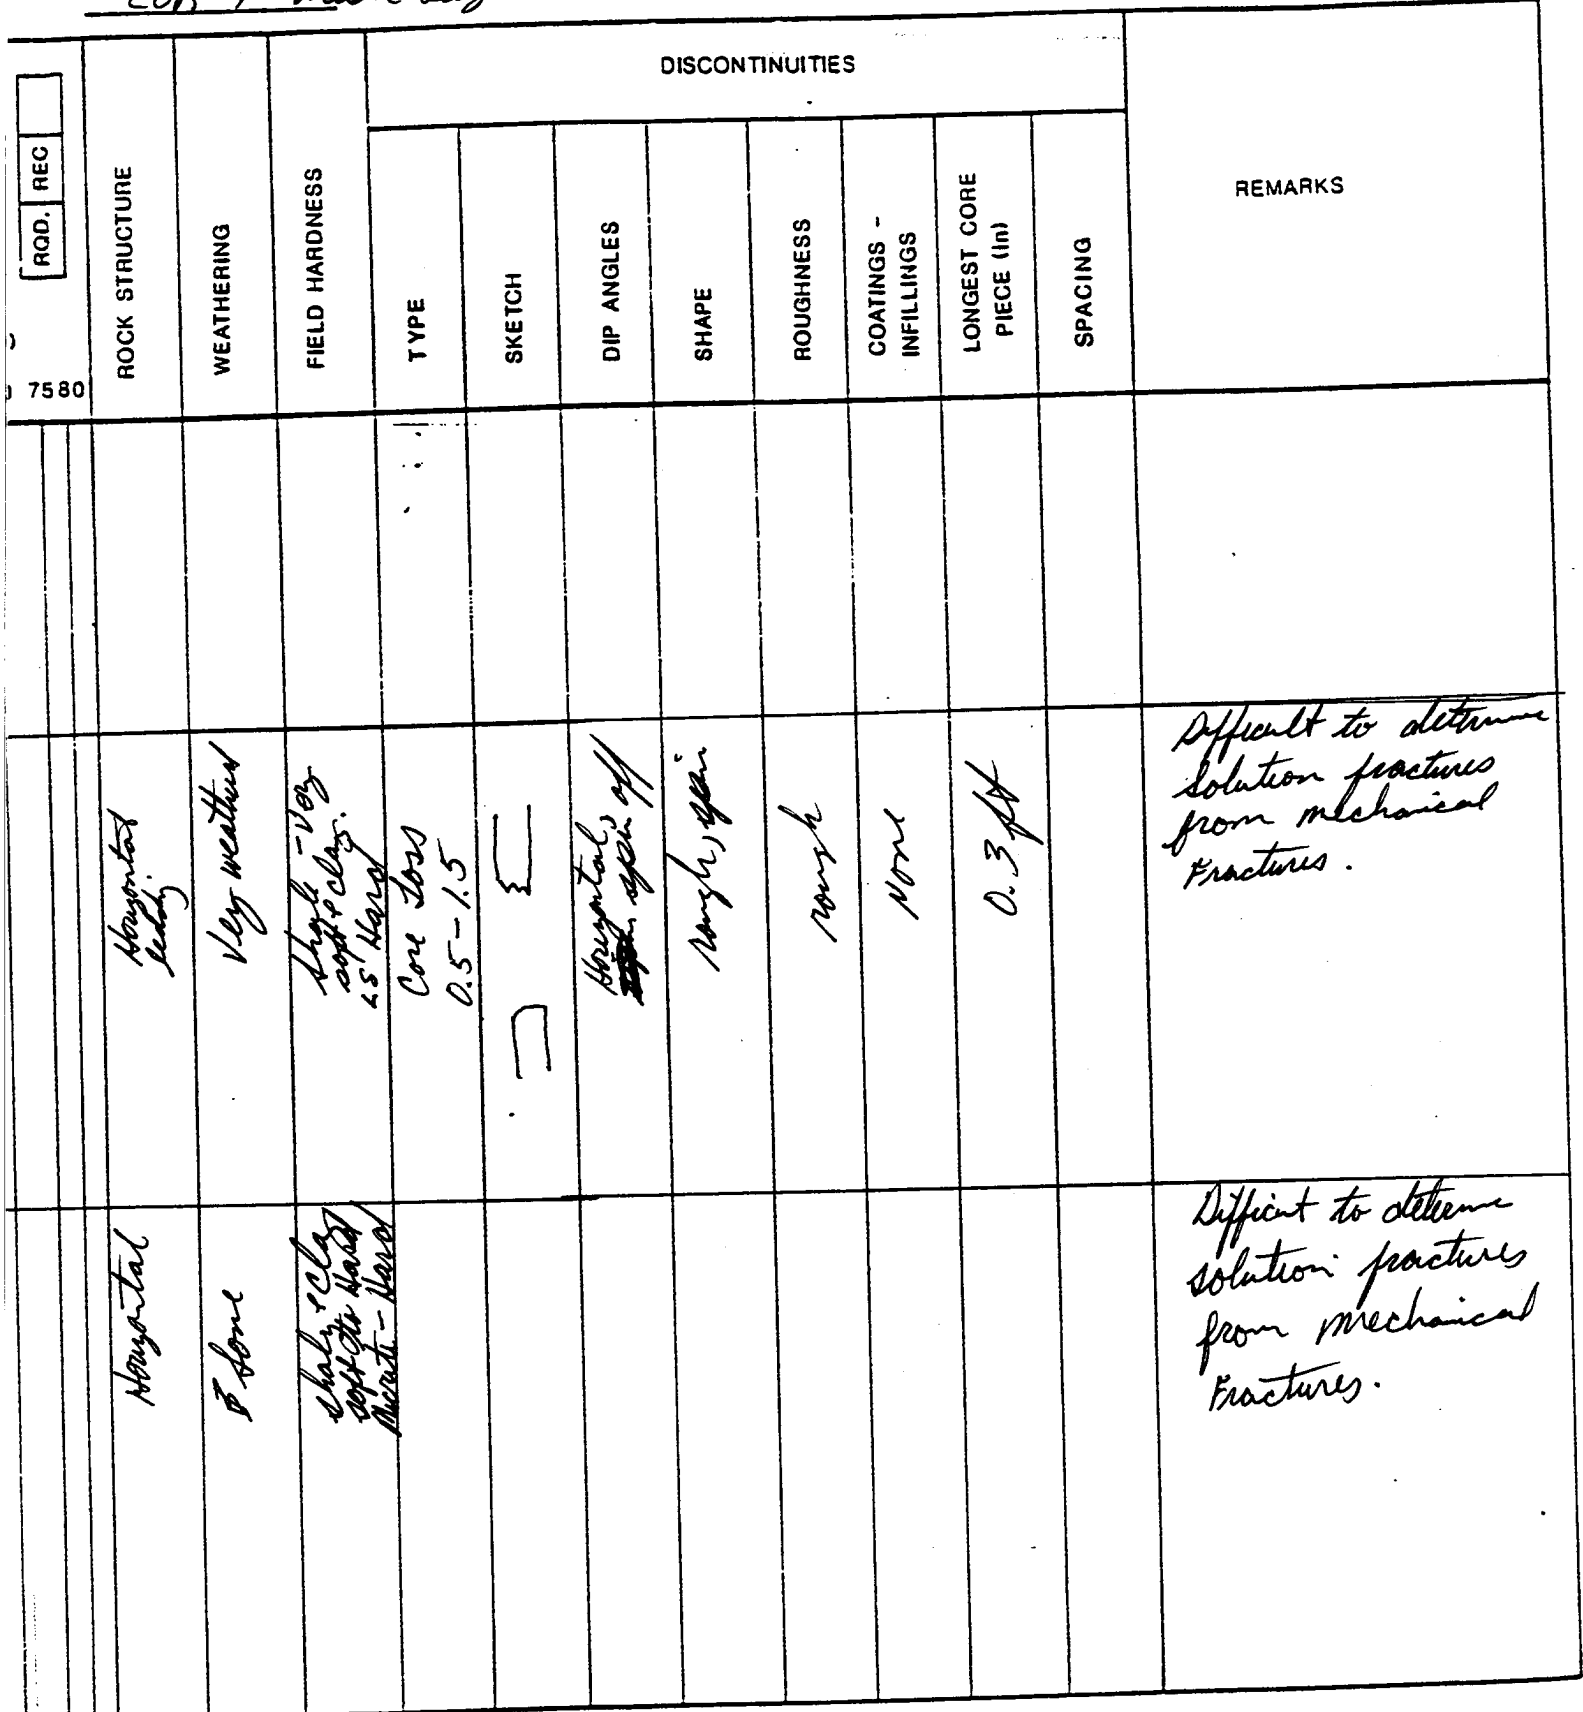 DISCONTINUITIES
RQD. REC
7580
ROCK STRUCTURE
WEATHERING
FIELD HARDNESS
TYPE
SKETCH
DIP ANGLES
SHAPE
ROUGHNESS
COATINGS -
INFILLINGS
LONGEST CORE
PIECE (In)
SPACING
REMARKS
Horizontal
Very weathered
Shale - Very
soft & clay.
LS Hard
Core Loss
0.5 - 1.5
Horizontal,
spin off
rough, spin
rough
None
0.3 ft
Difficult to determine
Solution fractures
from mechanical
Fractures.
Horizontal
Hard
Micrite - Hard
Difficut to determine
solution fractures
from mechanical
Fractures.